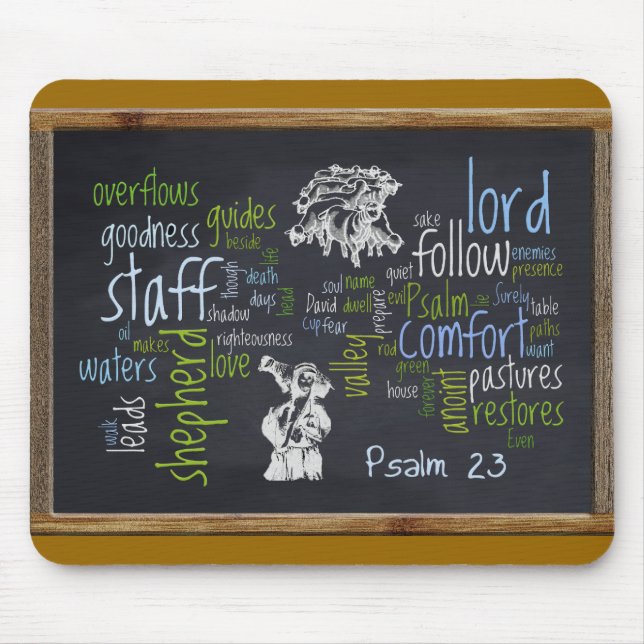 overflows
goodness
guides
beside
staff
though
death
life
days
head
shadow
oil
makes
righteousness
waters
shepherd
love
walk
leads
lord
sake
follow
enemies
presence
quiet
soul
name
David
dwell
Cup
fear
prepare
evil
Psalm
lie
Surely
table
paths
want
comfort
valley
rod
green
house
forever
anoint
pastures
restores
Even
Psalm 23